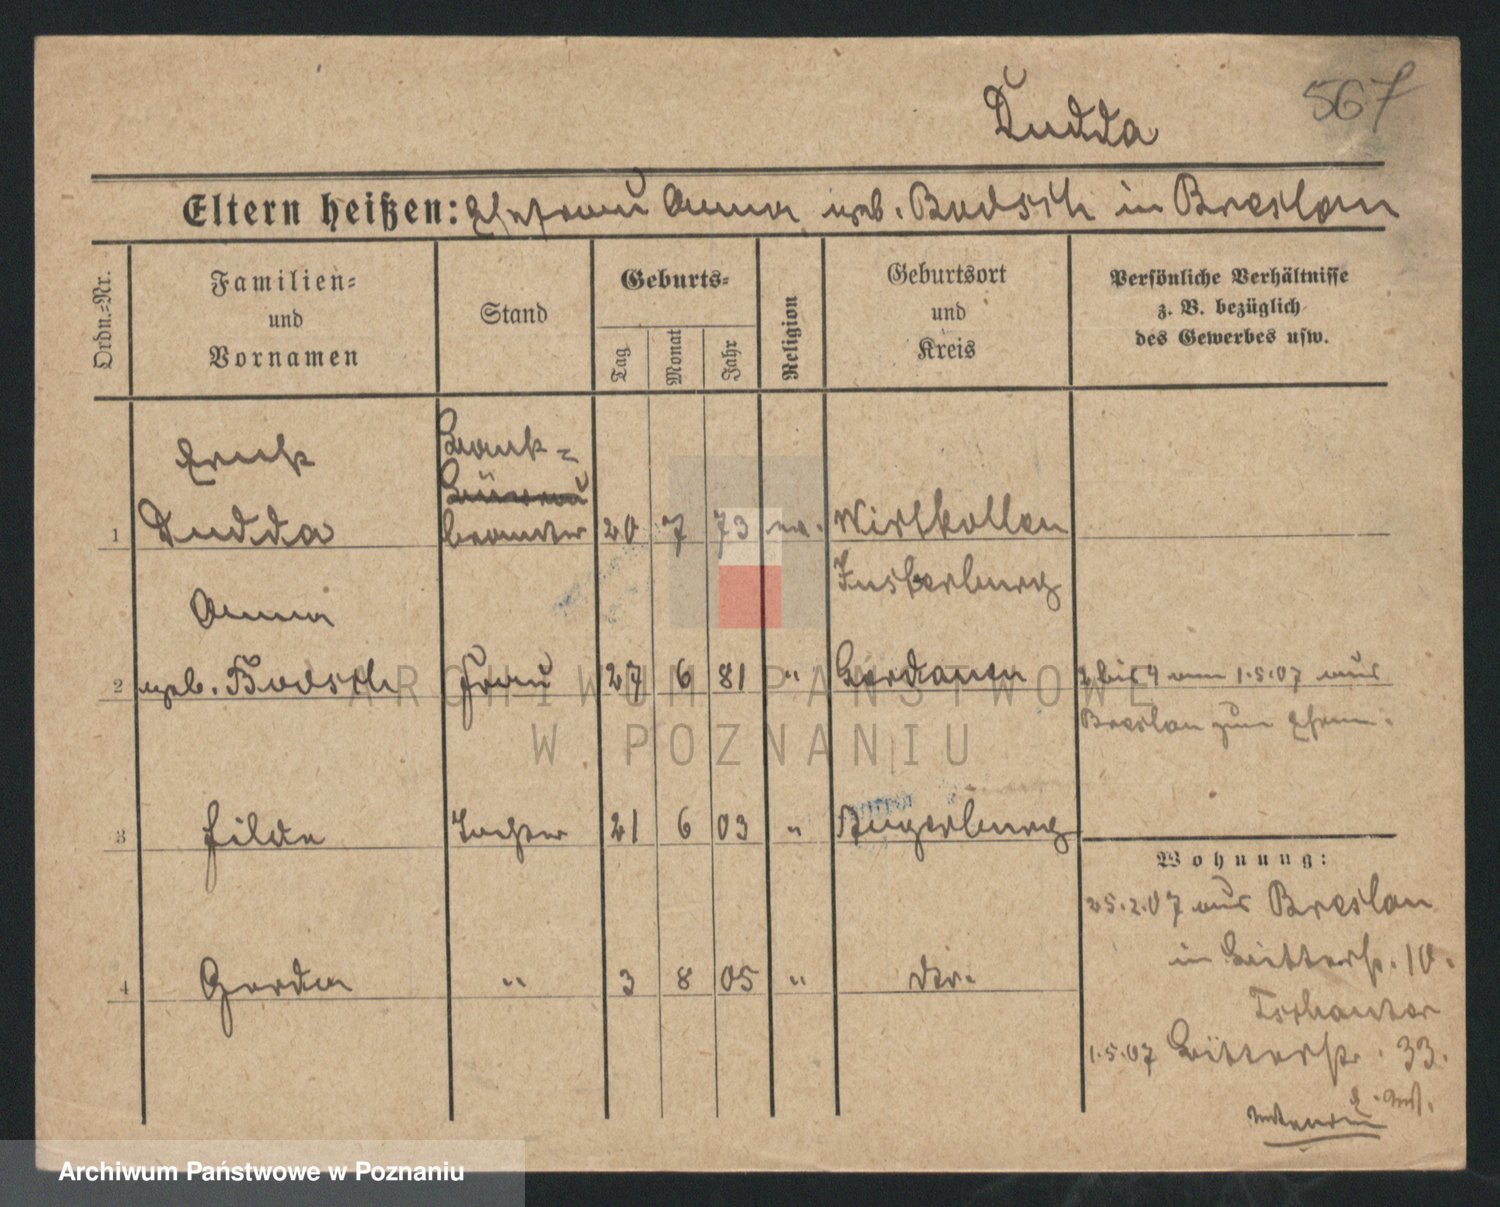 567
Dudda
Eltern heißen: Ehefrau Anna geb. Bodsch in Breslau
Ordn.=Nr.
Familien=
und
Vornamen
Stand
Geburts=
Tag
Monat
Jahr
Religion
Geburtsort
und
Kreis
Persönliche Verhältnisse
z. B. bezüglich
des Gewerbes usw.
Erich
Bank=
Büreau
1 Dudda beamter 20 7 73 ev. Wirtkallen
Insterburg
Anna
2 geb. Bodsch Frau 27 6 81 " Gerdauen 2 bis 4 am 1.5.07 aus
Breslau zum Ehem.
3 Hilde Tochter 21 6 03 " Angerburg
4 Gerda " 3 8 05 " do.
Wohnung:
25.2.07 aus Breslau
in Bitterstr. 10.
1.5.07 Bitterstr. 33.
ARCHIWUM PAŃSTWOWE
W POZNANIU
Archiwum Państwowe w Poznaniu